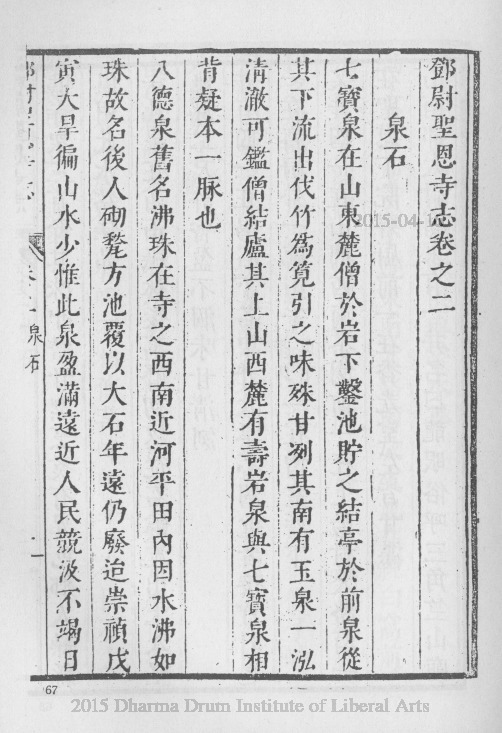 鄧尉聖恩寺志卷之二
泉石
七寶泉在山東麓僧於岩下鑿池貯之結亭於前泉從
其下流出伐竹為筧引之味殊甘冽其南有玉泉一泓
清澈可鑑僧結廬其上山西麓有壽岩泉與七寶泉相
背疑本一脉也
八德泉舊名沸珠在寺之西南近河平田內因水沸如
珠故名後人砌甃方池覆以大石年遠仍廢迨崇禎戊
寅大旱徧山水少惟此泉盈滿遠近人民競汲不竭日
卷二 泉石
一
67
2015 Dharma Drum Institute of Liberal Arts